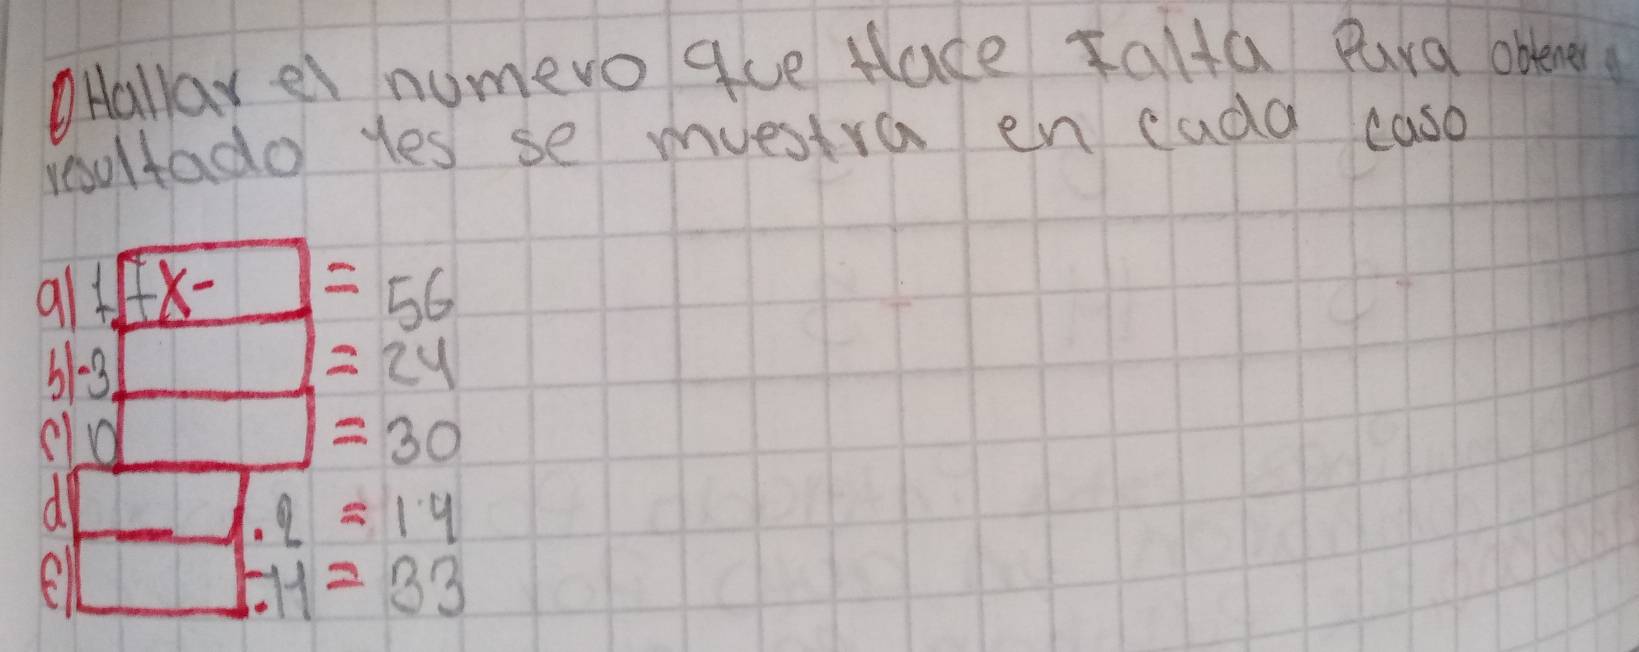 ① Hallar el numero que Hace Falta Para obtener
resultado Yes se muestra en cada caso
a) 7. 7x- = 56
b) -3 = 24
c) 0 = 30
d) . 2 = 1.4
e) . -11 = 33